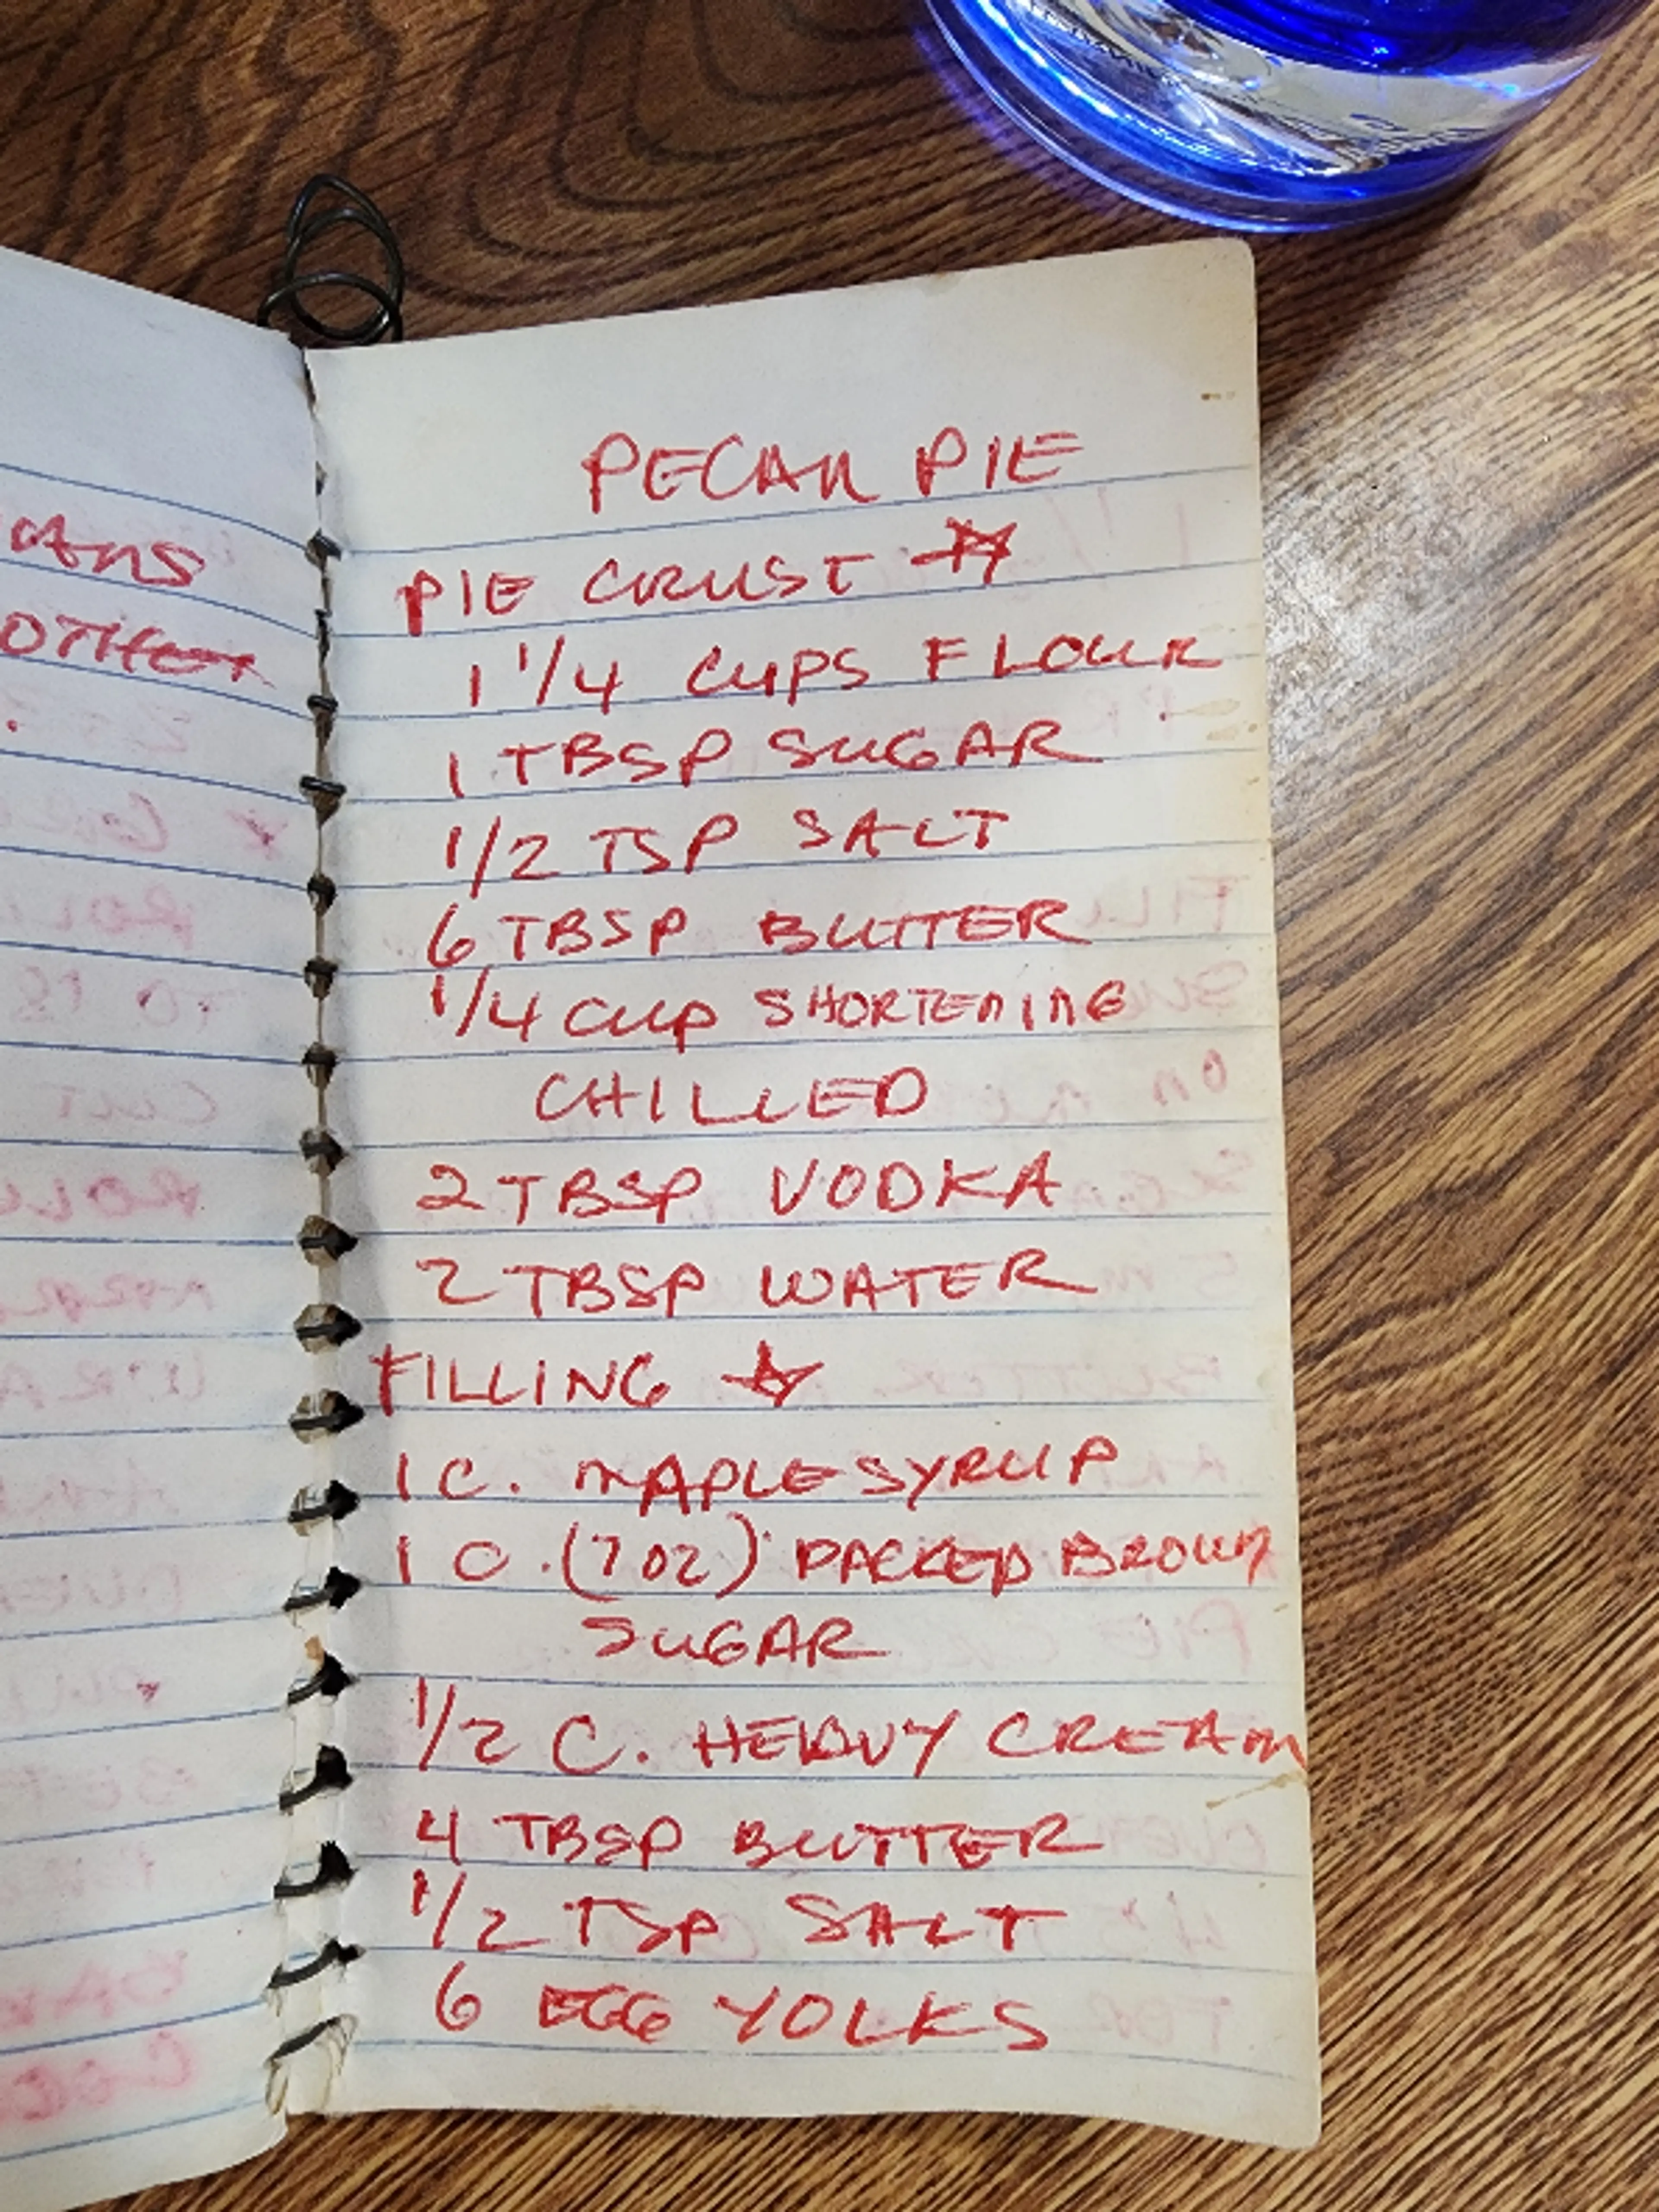 PECAN PIE
PIE CRUST ☆
1 1/4 CUPS FLOUR
1 TBSP SUGAR
1/2 TSP SALT
6 TBSP BUTTER
1/4 CUP SHORTENING
CHILLED
2 TBSP VODKA
2 TBSP WATER
FILLING ☆
1 C. MAPLE SYRUP
1 C. (7 OZ) PACKED BROWN
SUGAR
1/2 C. HEAVY CREAM
4 TBSP BUTTER
1/2 TSP SALT
6 EGG YOLKS